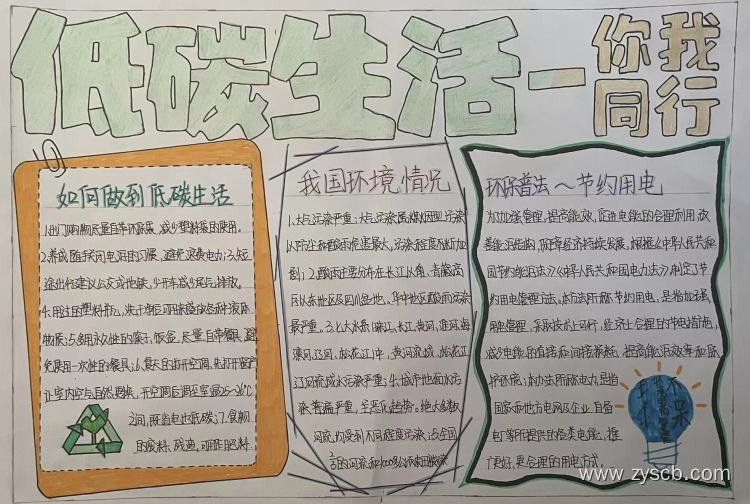 低碳生活—你我同行
如何做到低碳生活
1.出门购物尽量自带环保袋,减少塑料袋的使用。
2.养成随手关闭电源的习惯,避免浪费电力;3.短
途出行建议公交或地铁,少开车减少尾气排放。
4.用过的塑料瓶,洗干净后可用来盛放各种液体
物质;5.多用永久性的筷子,饭盒,尽量自带餐具,避
免使用一次性的餐具;6.夏天的打开空调,先打开窗户
让室内空气自然更换,开空调后调至室温25~26℃
之间,既省电也低碳;7.食物
的废料、残渣,可用作肥料
我国环境情况
1.大气污染严重:大气污染属煤烟型污染
以所尘和酸雨危害最大,污染程度在加
剧;2.酸雨主要分布在长江以南、青藏高
原以东地区及四川盆地。华中地区酸雨污染
最严重。3.七大水系:珠江、长江、黄河、淮河、海
滦河、辽河、松花江中,黄河流域、松花江
辽河流域水污染严重;4.城市地面水污
染普遍严重,呈恶化趋势。绝大多数
河流均受到不同程度污染;5.全国
1/3的河流和
环保普法~节约用电
为加强管理,提高能效,促进电能的合理利用,改
善能源结构,保障经济持续发展,根据《中华人民共和
国节约能源法》《中华人民共和国电力法》,制定了节
约用电管理办法。本办法所称节约用电,是指加强
用电管理,采取技术上可行、经济上合理的节电措施,
减少电能的直接和间接损耗,提高能源效率和保
护环境;本办法所称电力,是指
国家和地方电网及企业自备
电厂等所提供的各类电能,推
广更好、更合理的用电方式。
环
保
www.zyscb.com